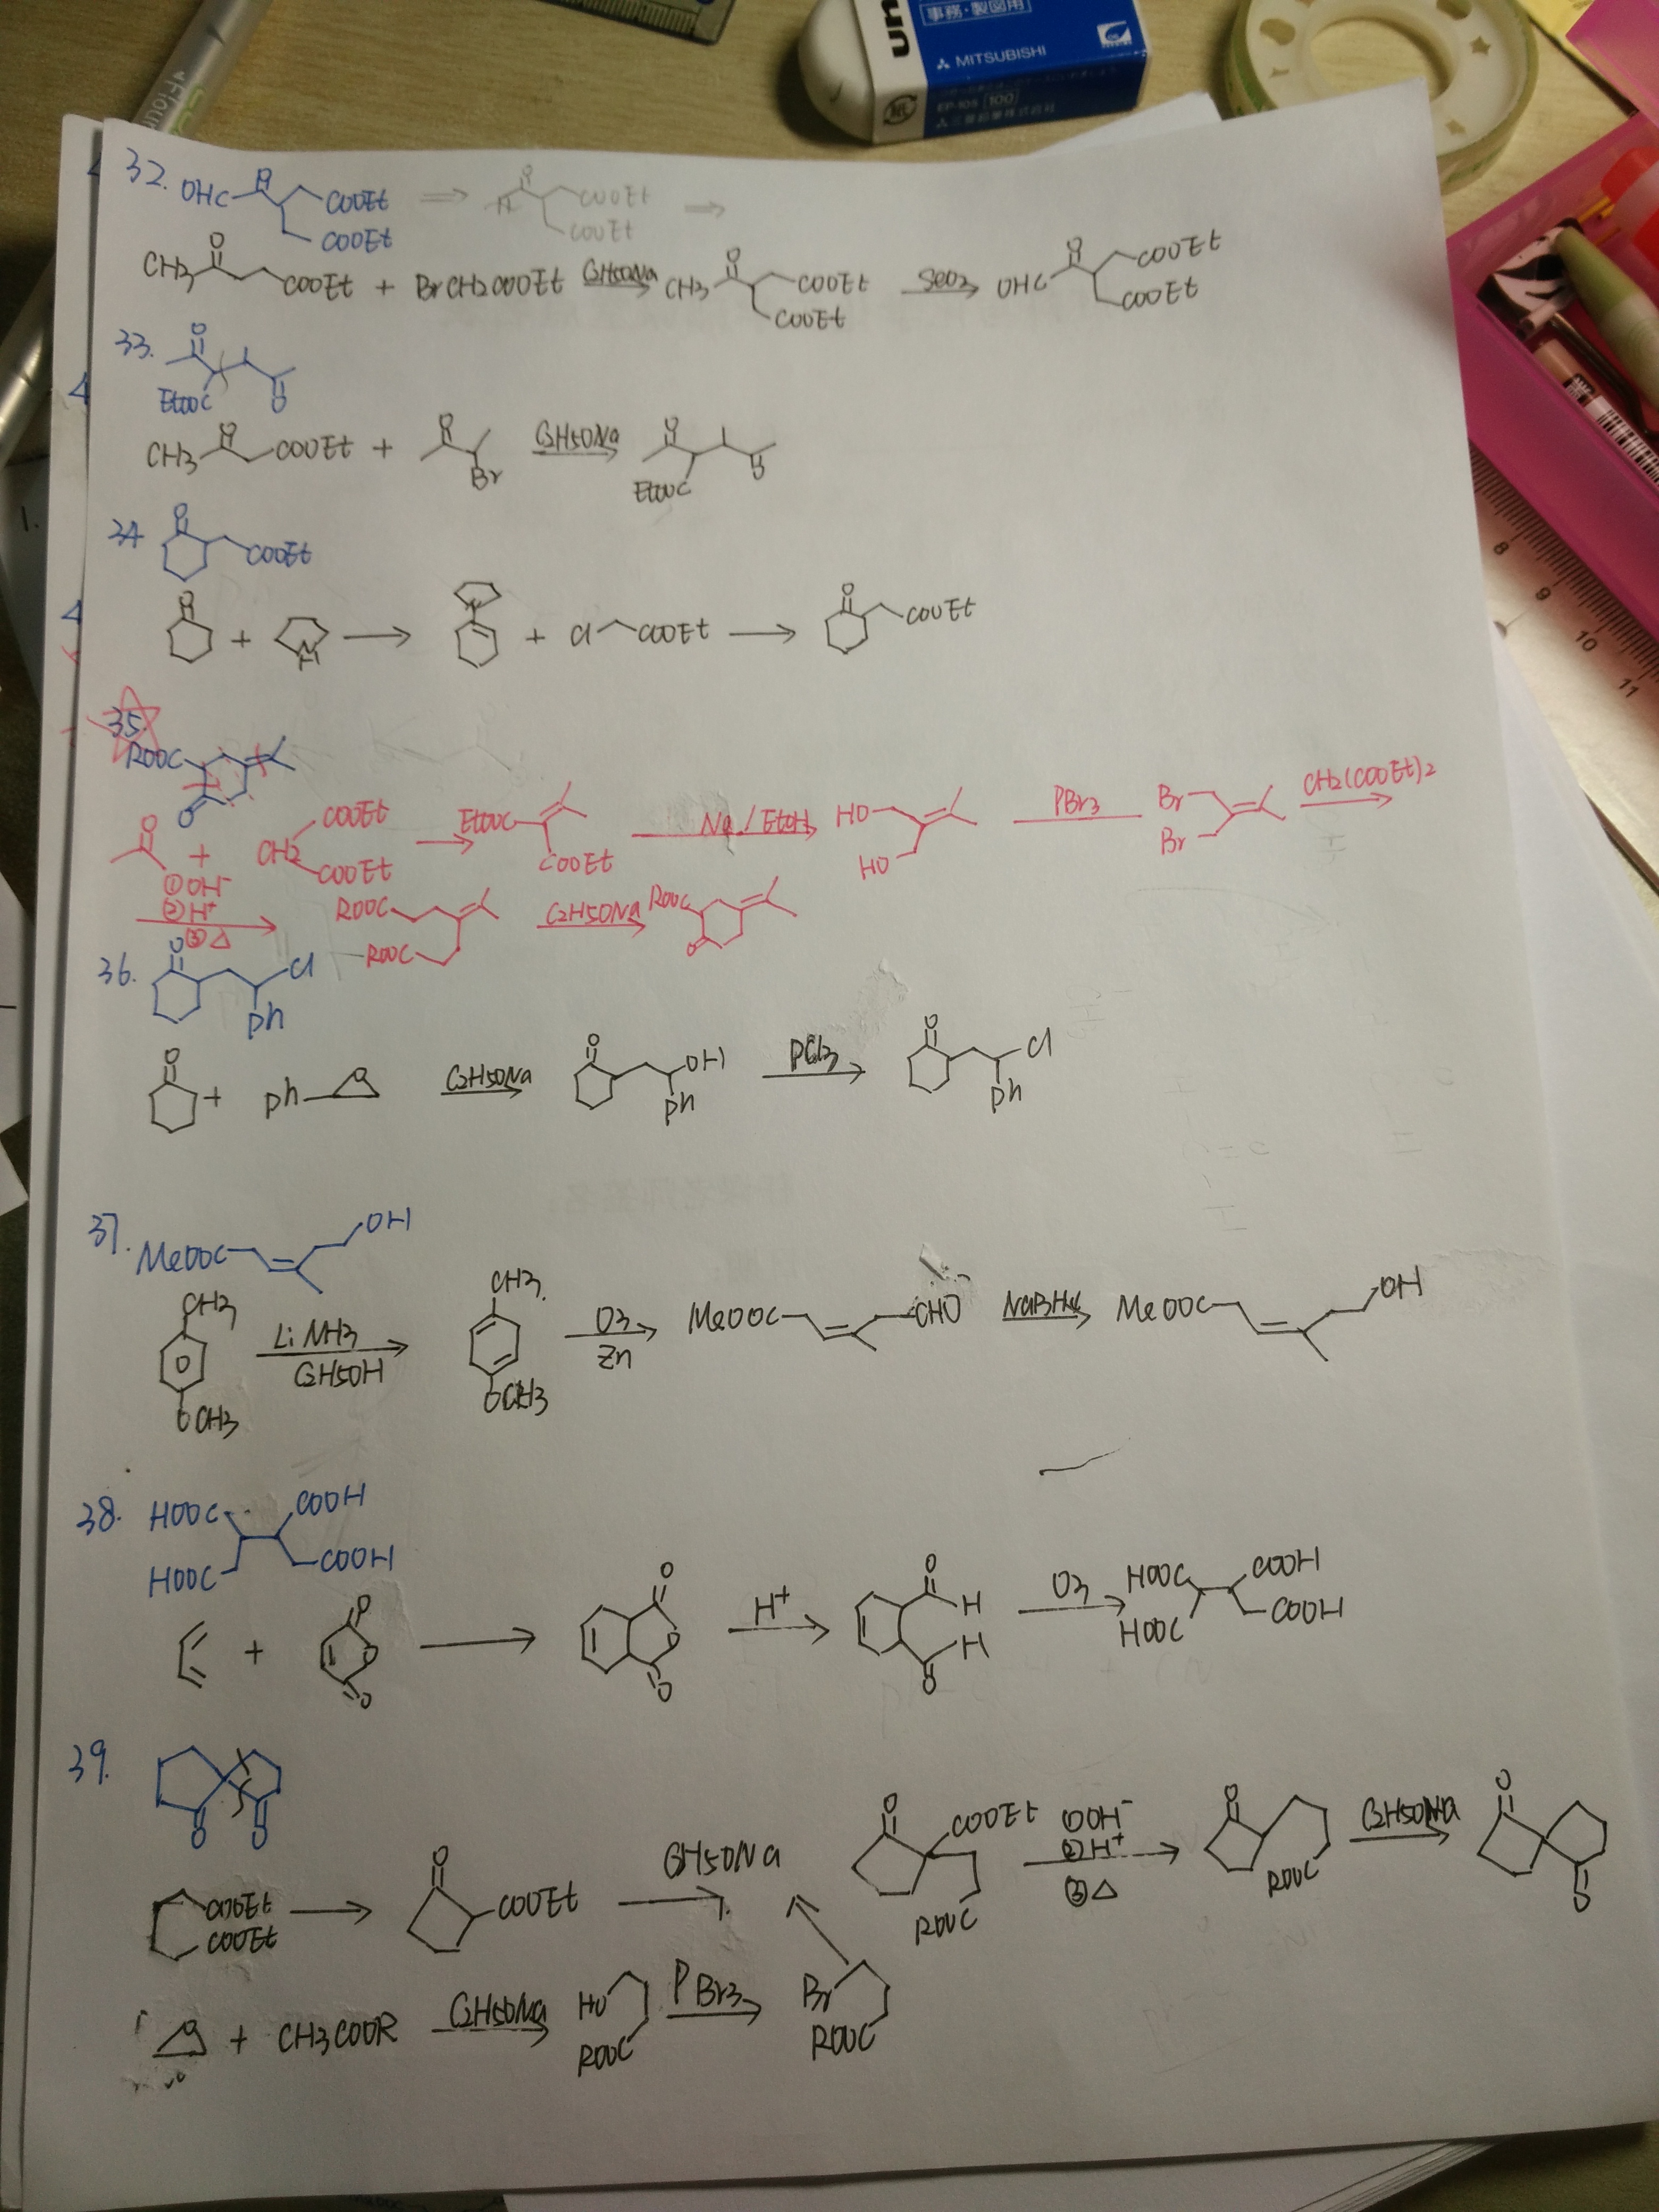 un
事務・製図用
MITSUBISHI
EP-105 100
三菱鉛筆株式会社
8
9
10
11
32. OHC O COOEt COOEt ⇒ O COOEt COOEt ⇒
CH3 O COOEt + BrCH2COOEt C2H5ONa CH3 O COOEt COOEt SeO2 OHC O COOEt COOEt
33. O EtOOC O
CH3 O COOEt + O Br C2H5ONa O EtOOC O
34 O COOEt
O + N H → N + Cl COOEt → O COOEt
35. ROOC O
O + CH2 COOEt COOEt → EtOOC COOEt Na/EtOH HO HO PBr3 Br Br CH2(COOEt)2
①OH⁻ ②H⁺ ③△ ROOC ROOC C2H5ONa ROOC O
36. O Cl Ph
O + Ph O C2H5ONa O OH Ph PCl3 O Cl Ph
37. MeOOC OH
CH3 OCH3 Li NH3 C2H5OH CH3 OCH3 O3 Zn MeOOC CHO NaBH4 MeOOC OH
38. HOOC COOH HOOC COOH
+ O O O → O O O H⁺ O H H O O3 HOOC COOH HOOC COOH
39. O O
COOEt COOEt → O COOEt C2H5ONa O COOEt ROOC ①OH⁻ ②H⁺ ③△ O ROOC C2H5ONa O O
O + CH3COOR C2H5ONa HO ROOC PBr3 Br ROOC